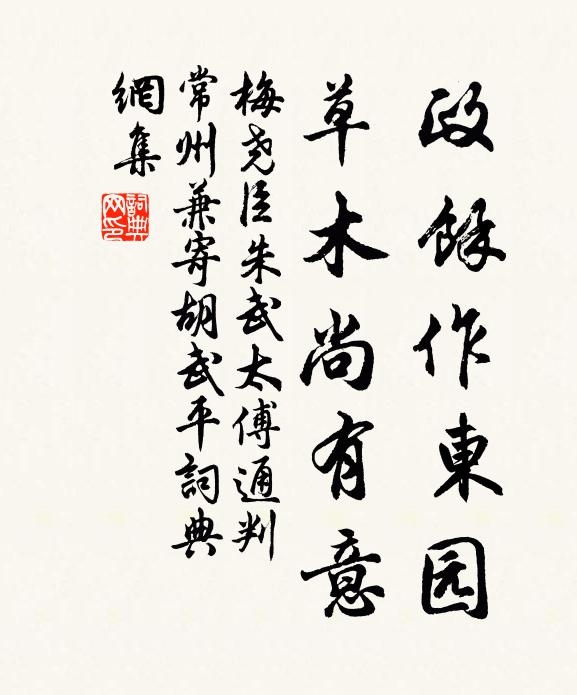 政餘作東园
草木尚有意
梅尧臣朱武太傅通判
常州兼寄胡武平詞典
網集
詞典网印